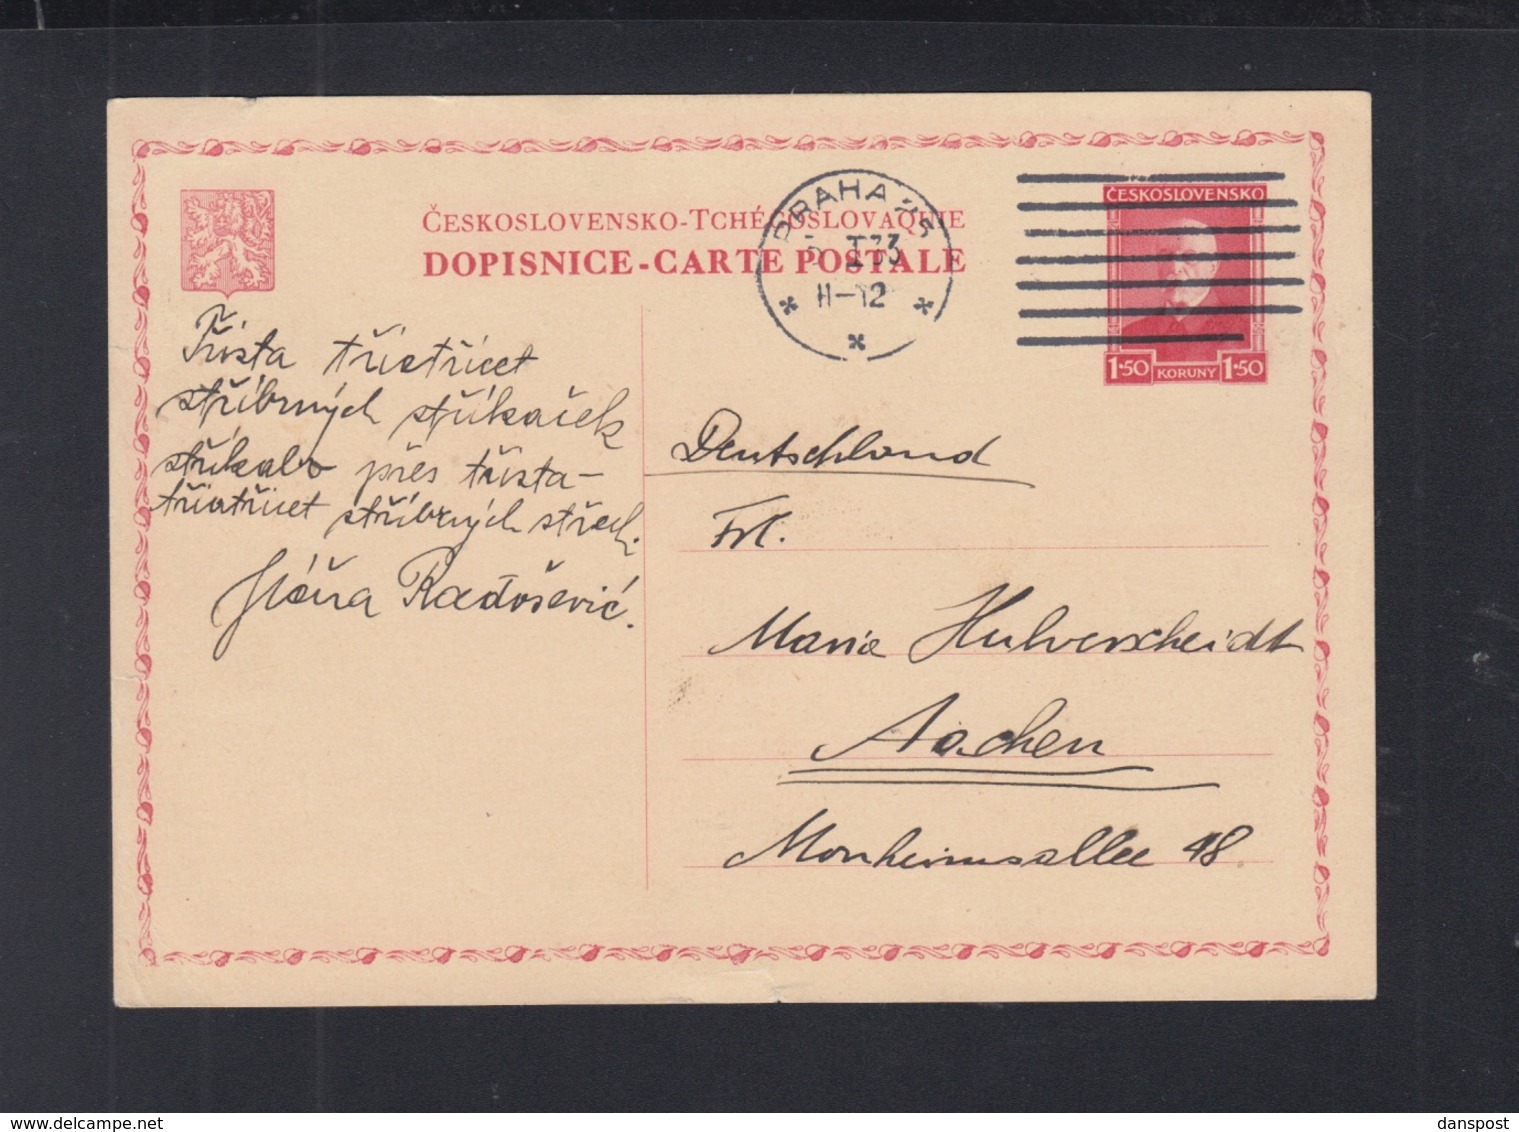 ČESKOSLOVENSKO-TCHÉCOSLOVAQUIE
DOPISNICE-CARTE POSTALE
PRAHA 25
5. I 33
11-12
ČESKOSLOVENSKO
1·50 KORUNY 1·50
Třista třiatřicet
stříbrných stříkaček
stříkalo přes třista-
třiatřicet stříbrných střech.
Radošević.
Deutschland
Frl.
Maria Hulverscheidt
Aachen
Monheimsallee 48.
delcampe.net
danspost